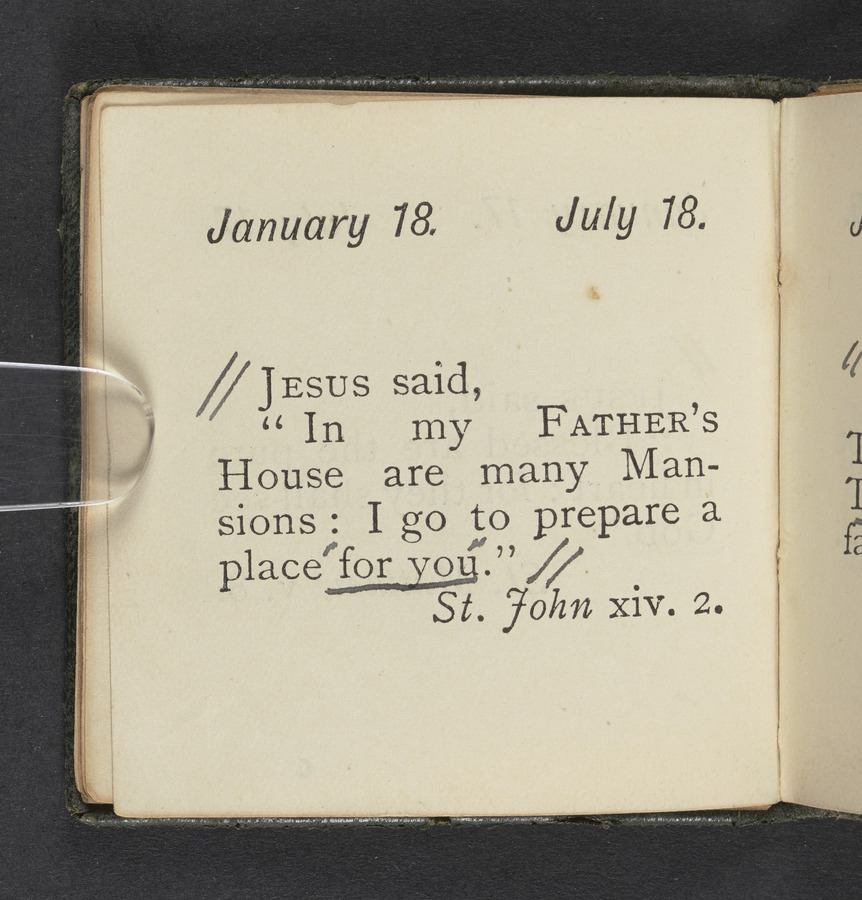 January 18. July 18.
// JESUS said,
“ In my FATHER'S
House are many Man-
sions : I go to prepare a
place "for you." //
St. John xiv. 2.